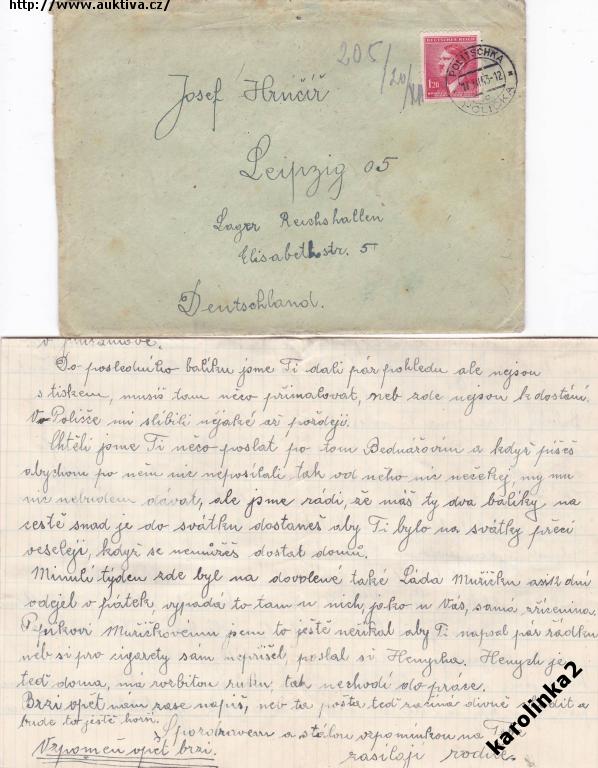 http://www.auktiva.cz/
205/20/
DEUTSCHES REICH
1.20
POLITSCHKA
POLIČKA
Josef Hrnčíř
Leipzig 05
Lager Reichshallen
Elisabethstr. 5
Deutschland.
Do posledního balíku jsme Ti dali pár pohledu ale nejsou
s tiskem, musíš tam něco přimalovat, neb zde nejsou k dostání.
V Poličce mi slíbili nějaké až později.
Chtěli jsme Ti něco poslat po tom Bednářovim a když píšeš
abychom po něm nic neposílali tak od něho nic nečekej, my mu
nic nebudem dávat, ale jsme rádi, že máš ty dva balíky na
cestě snad je do svátku dostaneš aby Ti bylo na svátky přeci
veseleji, když se nemůžeš dostat domů.
Minulí týden zde byl na dovolené také Láda Muřičku asi dní
odejel v pátek, vypadá to tam u nich, jako u Vás, samá zřícenina.
Muřičkovému jsem to ještě neříkal aby Ti napsal pár řádku
neb si pro cigarety sám nepřišel, poslal si Henycha. Henych je
teď doma, má rozbitou ruku, tak nechodí do práce.
Brzi opět nám zase napiš, neb ta pošta teď začíná divně
bude to ještě horší.
S pozdravem a stálou vzpomínkou na
Vzpomeň opět brzi.
zasílají rodiče.
karolinka2